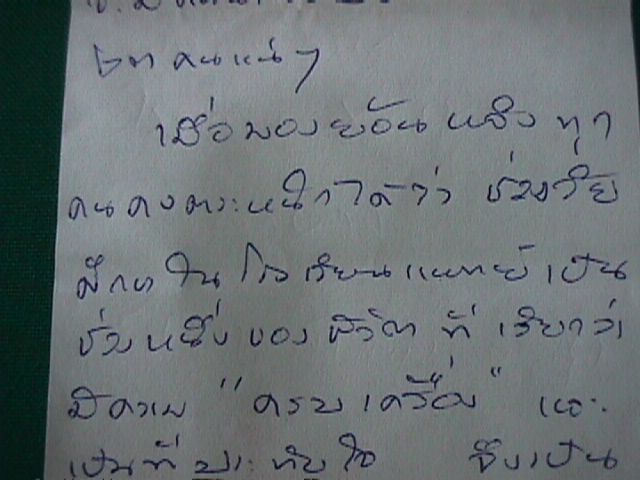 คนแน่ๆ
เมื่อมองย้อนหลังทุก
คนคงตระหนักได้ว่า ช่วงวัย
ศึกษาในโรงเรียนแพทย์เป็น
ช่วงหนึ่งของชีวิต ที่เรียกว่า
มีความ "ครบเครื่อง" และ
เป็นที่ประทับใจ จึงเป็น